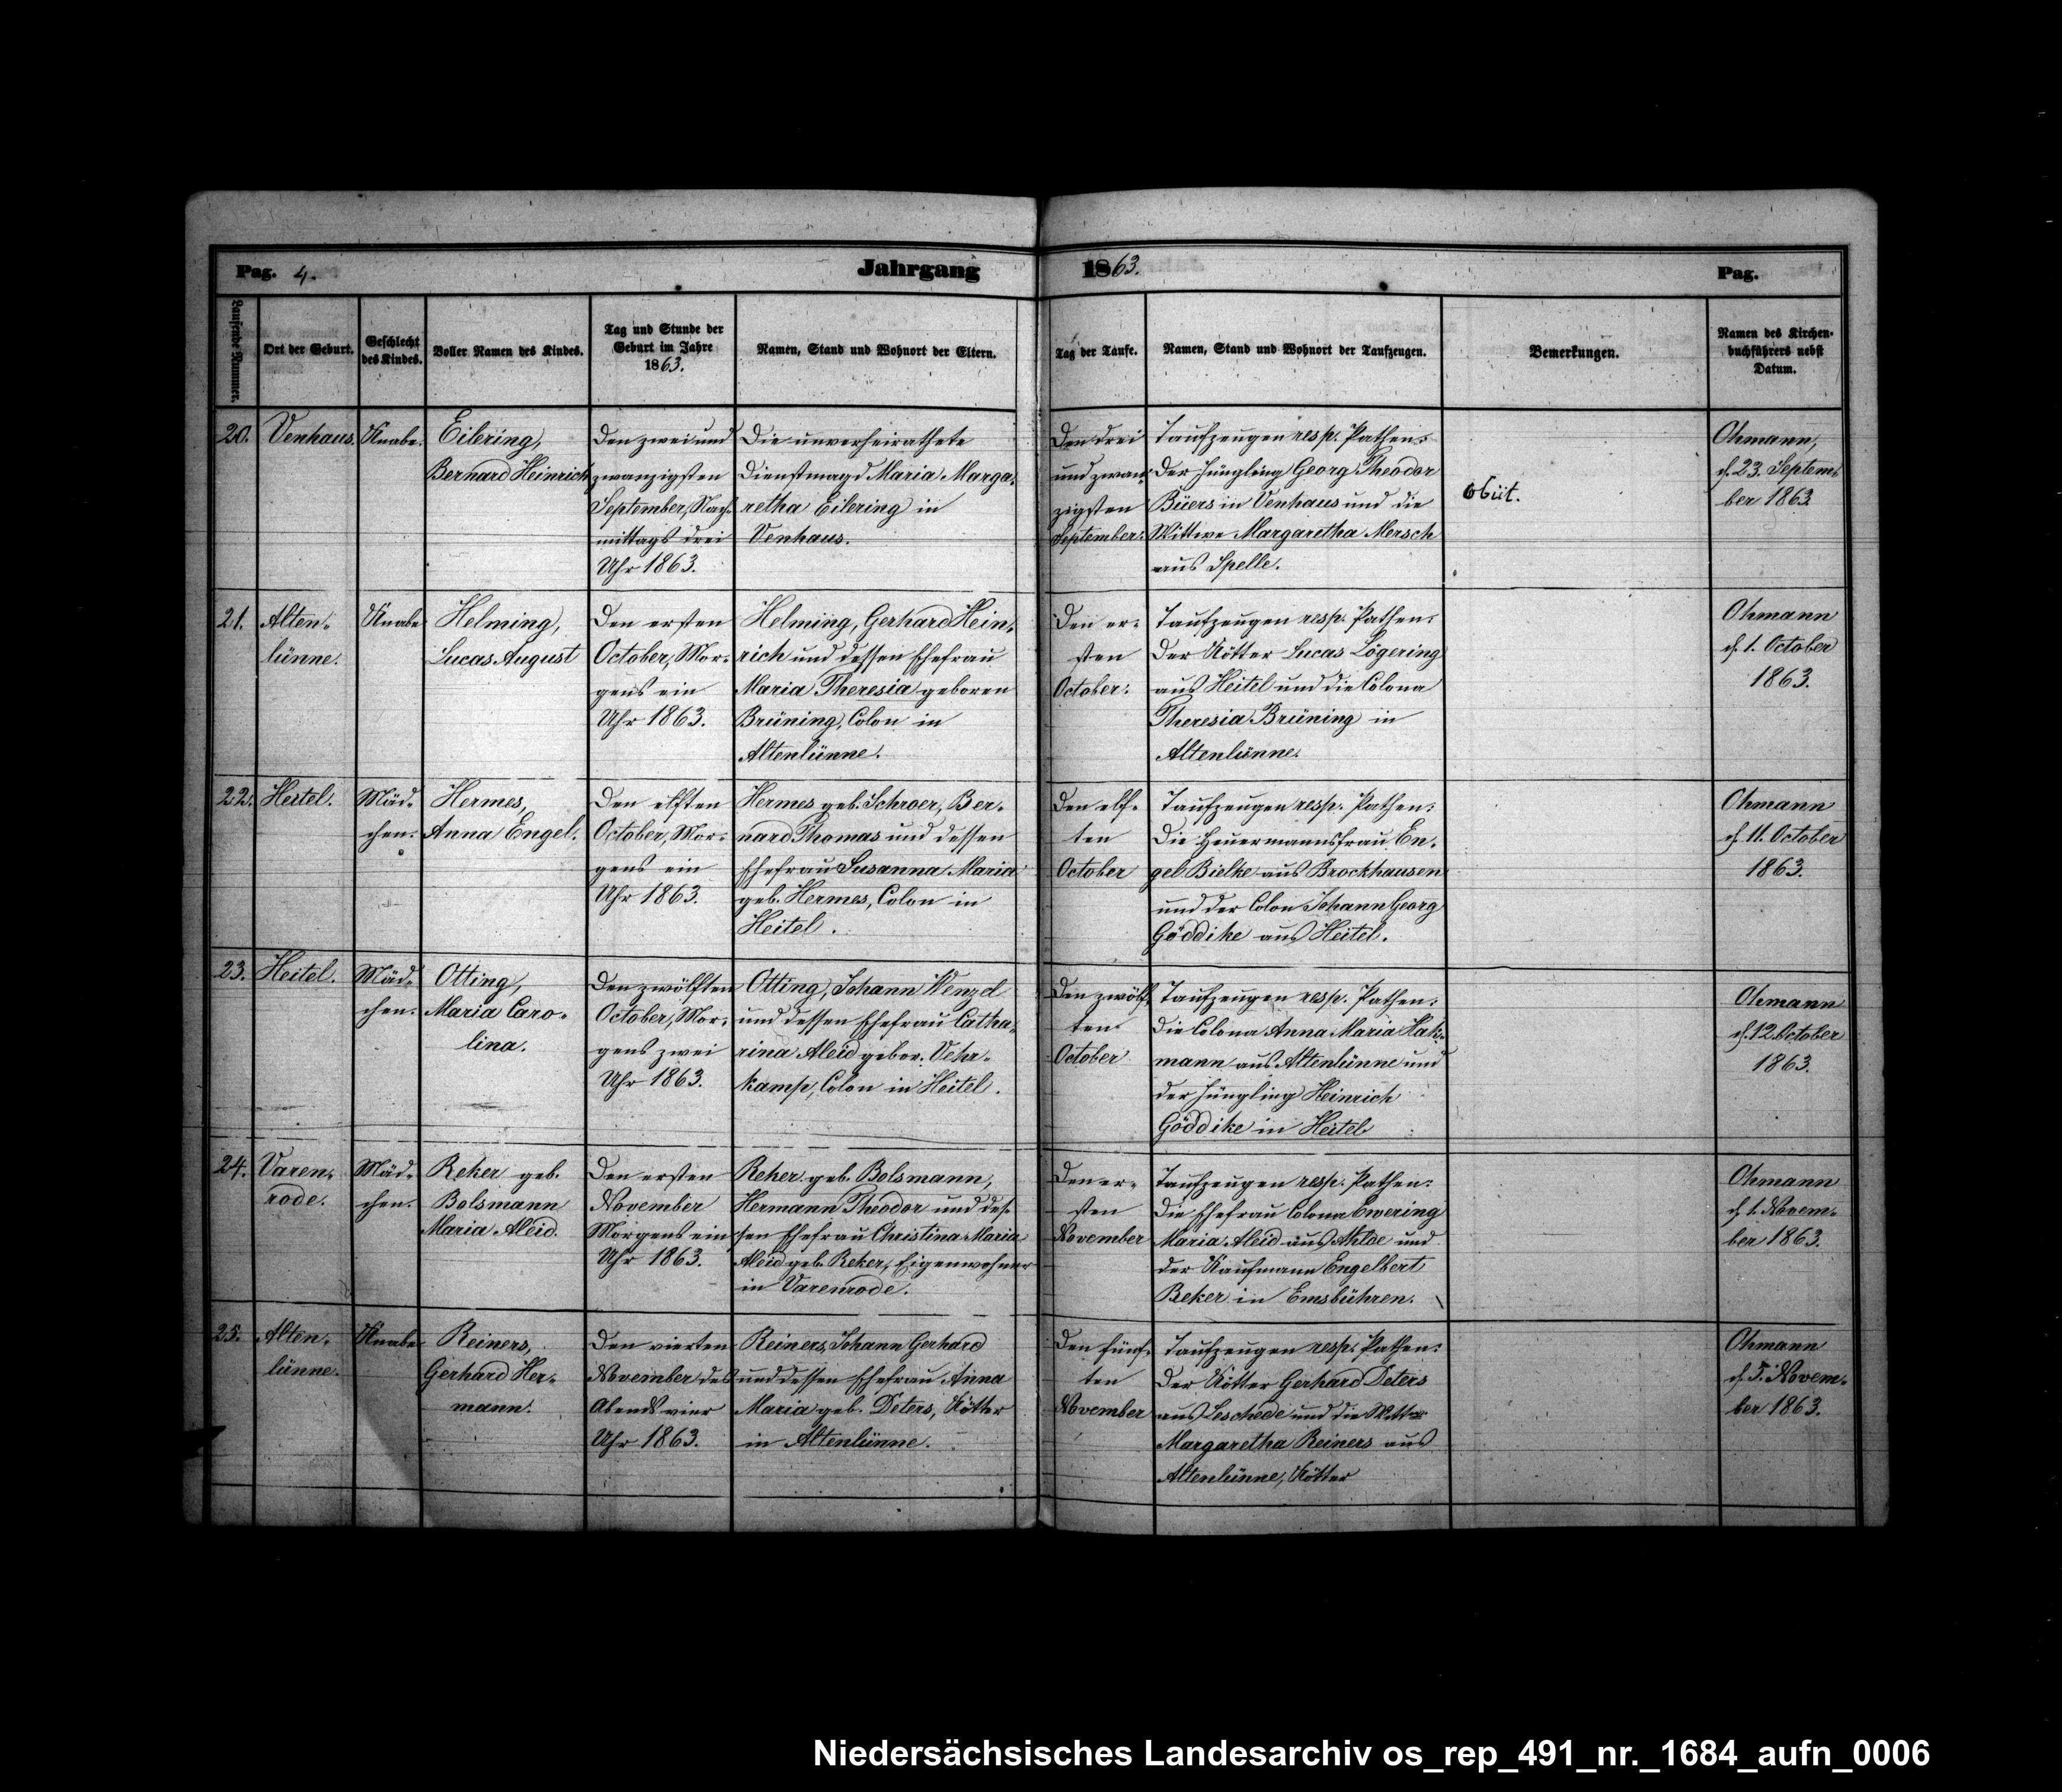 Pag. 4.
Jahrgang
1863.
Pag.
Laufende Nummer.
Ort der Geburt.
Geschlecht
des Kindes.
Voller Namen des Kindes.
Tag und Stunde der
Geburt im Jahre
1863.
Namen, Stand und Wohnort der Eltern.
Tag der Taufe.
Namen, Stand und Wohnort der Taufzeugen.
Bemerkungen.
Namen des Kirchen-
buchführers nebst
Datum.
20.
Venhaus.
Knabe.
Eilering,
Bernard Heinrich
Den zwei und
zwanzigsten
September, Nach-
mittags drei
Uhr 1863.
Die unverheirathete
Dienstmagd Maria Marga-
retha Eilering in
Venhaus.
Den drei
und zwan-
zigsten
September.
Taufzeugen resp. Pathen:
Der Jüngling Georg Theodor
Büers in Venhaus und die
Wittwe Margaretha Mersch
aus Spelle.
obiit.
Ohmann,
d. 23. Septem-
ber 1863
21.
Alten-
lünne.
Knabe
Helming,
Lucas August
Den ersten
October, Mor-
gens ein
Uhr 1863.
Helming, Gerhard Hein-
rich und dessen Ehefrau
Maria Theresia geboren
Brüning, Colon in
Altenlünne.
Den er-
sten
October.
Taufzeugen resp. Pathen:
Der Kötter Lucas Lögering
aus Heitel und die Colona
Theresia Brüning in
Altenlünne.
Ohmann
d. 1. October
1863.
22.
Heitel.
Mäd-
chen.
Hermes,
Anna Engel.
Den elften
October, Mor-
gens ein
Uhr 1863.
Hermes geb. Schroer, Ber-
nard Thomas und dessen
Ehefrau Susanna Maria
geb. Hermes, Colon in
Heitel.
Den elf-
ten
October
Taufzeugen resp. Pathen:
Die Heuermannsfrau En-
gel Bielke aus Brockhausen
und der Colon Johann Georg
Göddike aus Heitel.
Ohmann
d. 11. October
1863.
23.
Heitel.
Mäd-
chen.
Otting,
Maria Caro-
lina.
Den zwölften
October, Mor-
gens zwei
Uhr 1863.
Otting, Johann Wenzel
und dessen Ehefrau Catha-
rina Aleid gebor. Vehr-
kamp, Colon in Heitel.
Den zwölf-
ten
October
Taufzeugen resp. Pathen:
Die Colona Anna Maria Hak-
mann aus Altenlünne und
der Jüngling Heinrich
Göddike in Heitel
Ohmann
d. 12. October
1863.
24.
Varen-
rode.
Mäd-
chen.
Reker geb.
Bolsmann
Maria Aleid.
Den ersten
November
Morgens ein
Uhr 1863.
Reker geb. Bolsmann,
Hermann Theodor und des-
sen Ehefrau Christina Maria
Aleid geb. Reker, Eigenwohner
in Varenrode.
Den er-
sten
November
Taufzeugen resp. Pathen:
Die Ehefrau Colona Ewering
Maria Aleid aus und
der Kaufmann Engelbert
Reker in Emsbühren.
Ohmann
d. 1. Novem-
ber 1863.
25.
Alten-
lünne.
Knabe
Reiners,
Gerhard Her-
mann.
Den vierten
November des
Abends vier
Uhr 1863.
Reiners, Johann Gerhard
und dessen Ehefrau Anna
Maria geb. Deters, Kötter
in Altenlünne.
Den fünf-
ten
November
Taufzeugen resp. Pathen:
Der Kötter Gerhard Deters
aus Leschede und die
Margaretha Reiners aus
Altenlünne, Kötter
Ohmann
d. 5. Novem-
ber 1863.
Niedersächsisches Landesarchiv os_rep_491_nr._1684_aufn_0006